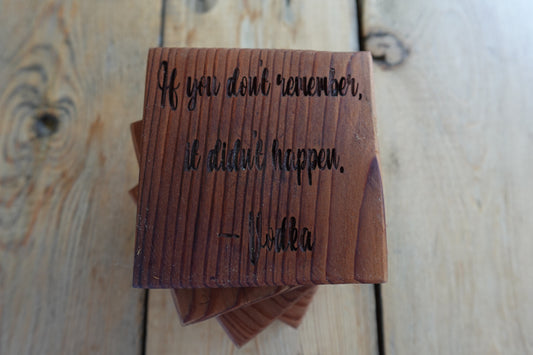 If you don't remember,
it didn't happen.
- Vodka